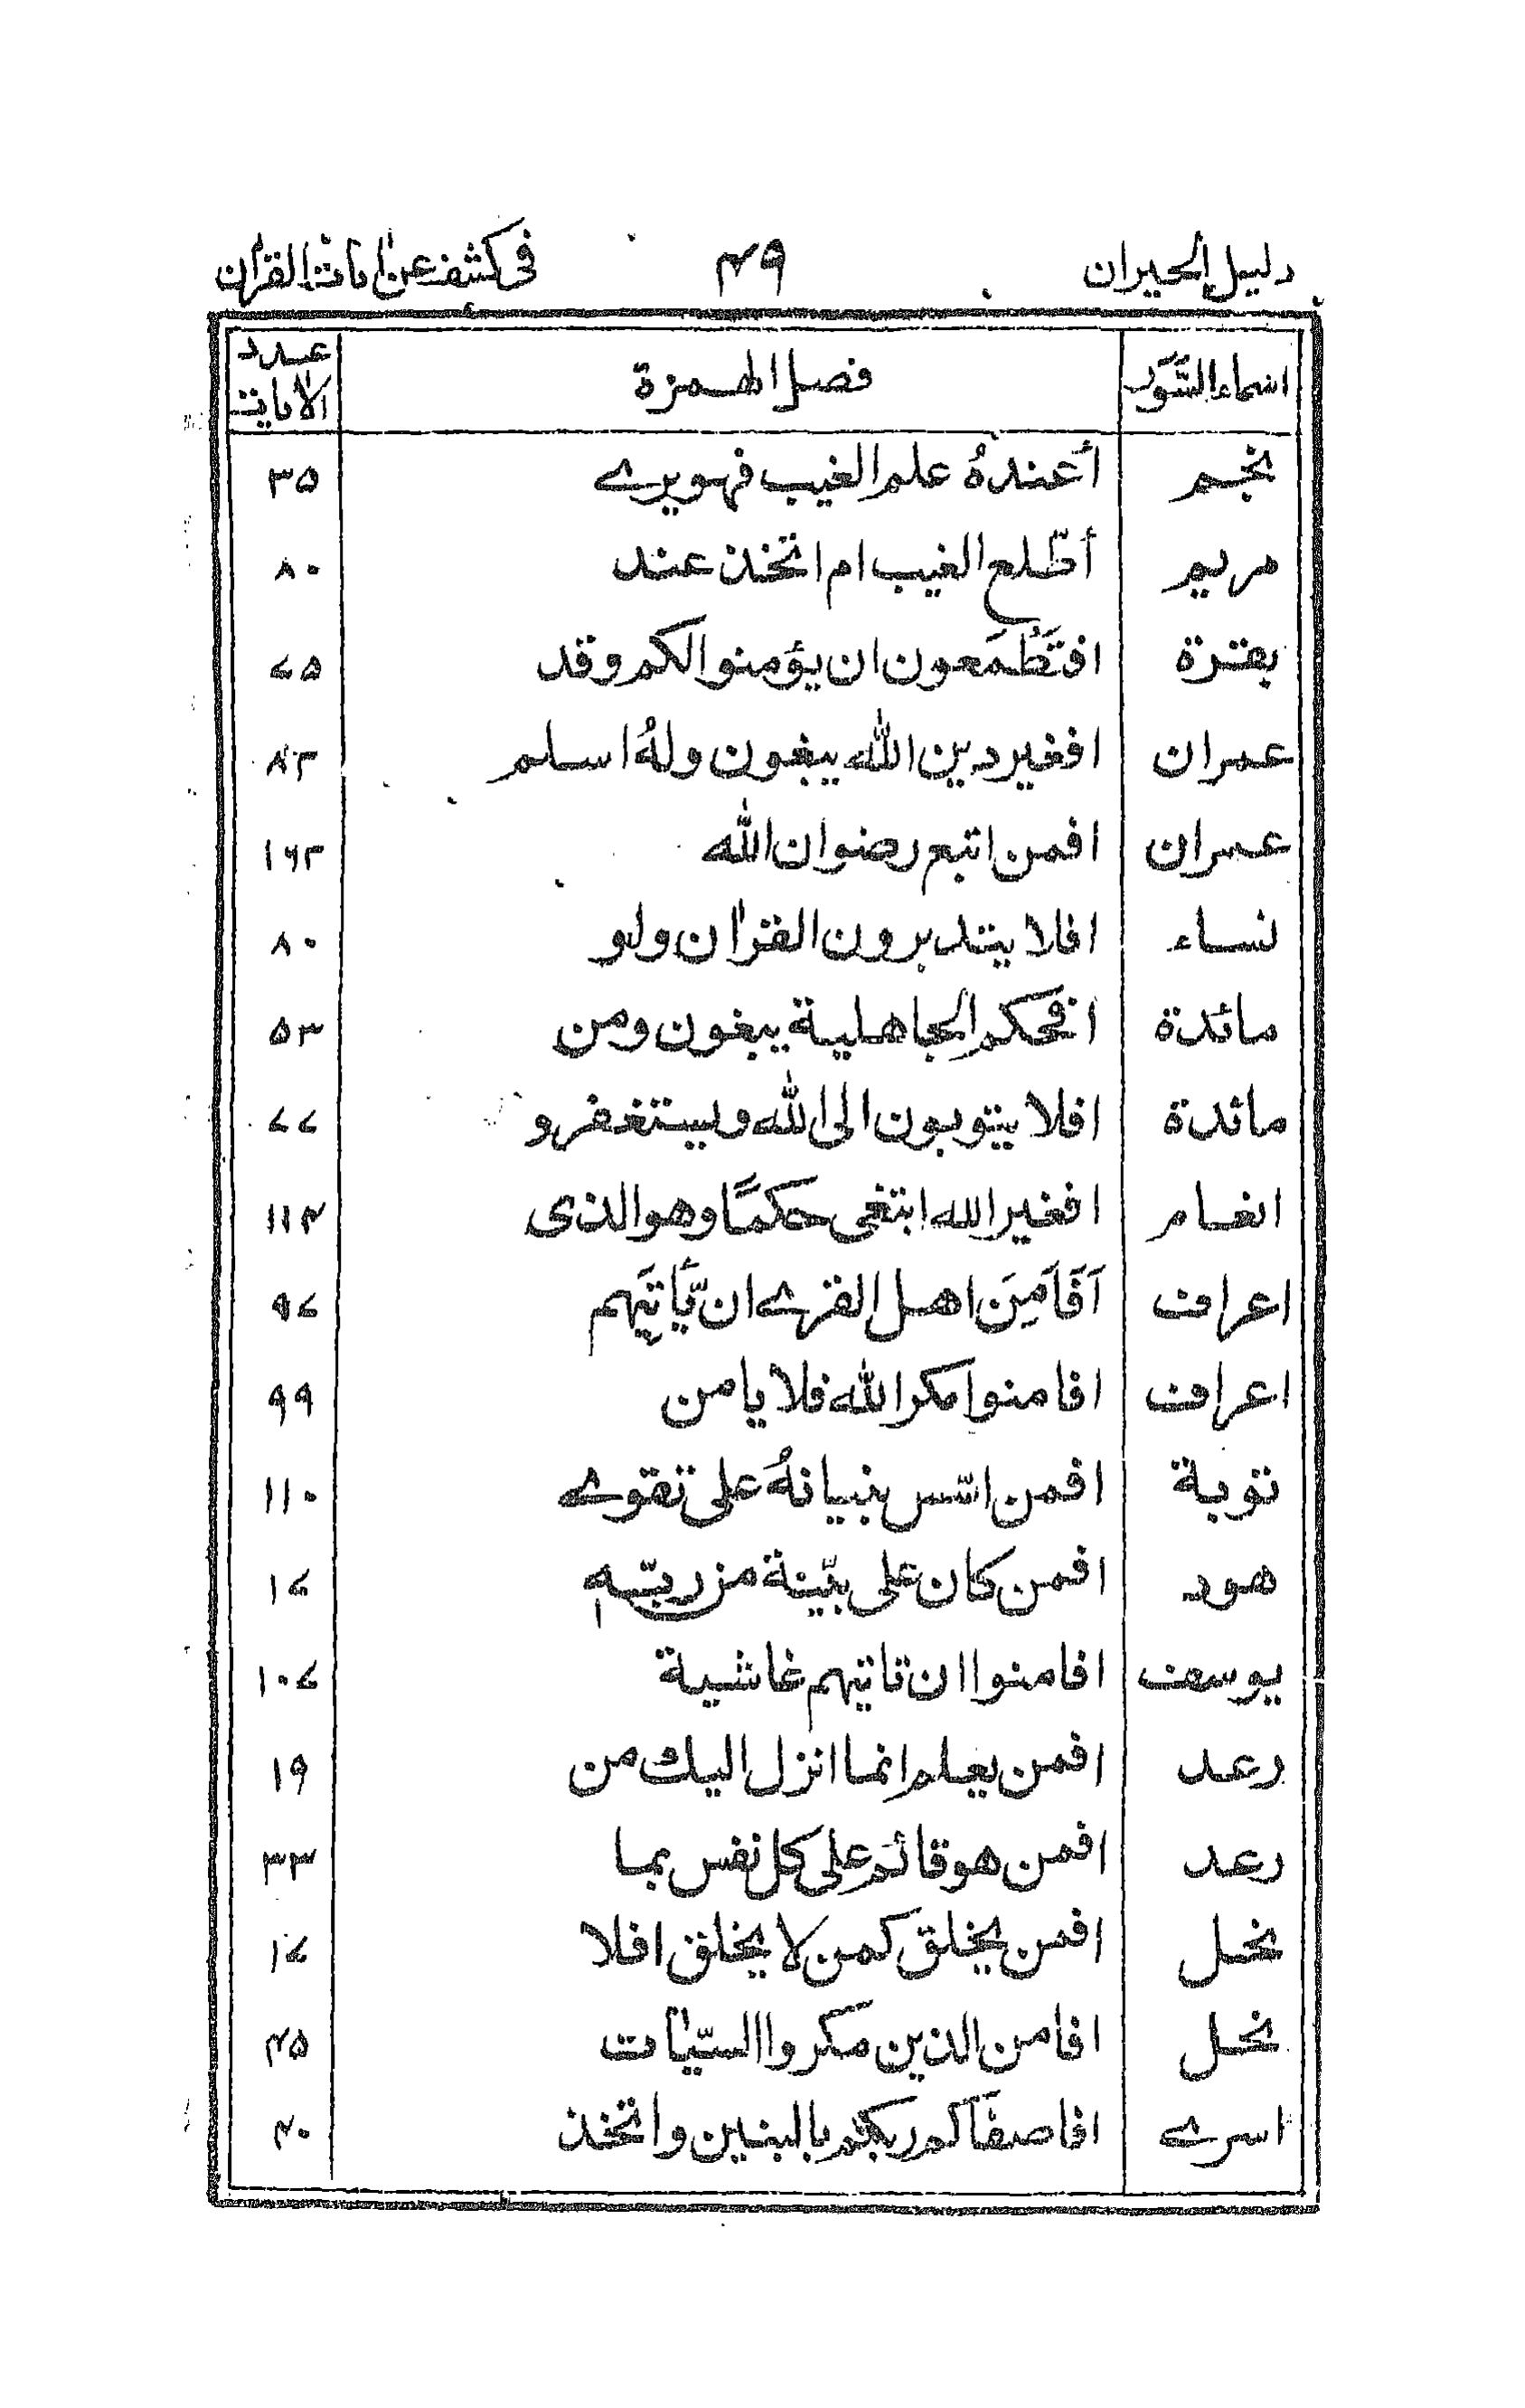 دليل الحيران ۴۹ فى كشف عن اٰيات القراٰن
اسماء السُّوَر فصل الهمزة عدد الاٰيات
نجم أعندهٗ علم الغيب فهو يرے ۳۵
مريم أطّلع الغيب ام اتخذ عند ۸۰
بقرة افتَطْمَعون ان يؤمنوا لكم وقد ۷۵
عمران افغير دين الله يبغون ولهٗ اسلم ۸۳
عمران افمن اتبع رضوان الله ۱۶۲
نساء افلا يتدبرون القراٰن ولو ۸۰
مائدة افحكم الجاهلية يبغون ومن ۵۳
مائدة افلا يتوبون الى الله ويستغفرو ۷۷
انعام افغير الله ابتغى حكمًا وهو الذى ۱۱۴
اعراف اَفَاَمِنَ اهل القرے ان يَّأتِيَهم ۹۷
اعراف افامنوا مكر الله فلا يامن ۹۹
توبة افمن اسّس بنيانهٗ على تقوے ۱۱۰
هود افمن كان على بيّنة من ربّه ۱۷
يوسف افامنوا ان تاتيهم غاشية ۱۰۷
رعد افمن يعلم انما انزل اليك من ۱۹
رعد افمن هو قائم على كل نفس بما ۳۳
نحل افمن يخلق كمن لا يخلق افلا ۱۷
نحل افامن الذين مكروا السيّاٰت ۴۵
اسرے افاصفاكم ربكم بالبنين واتخذ ۴۰